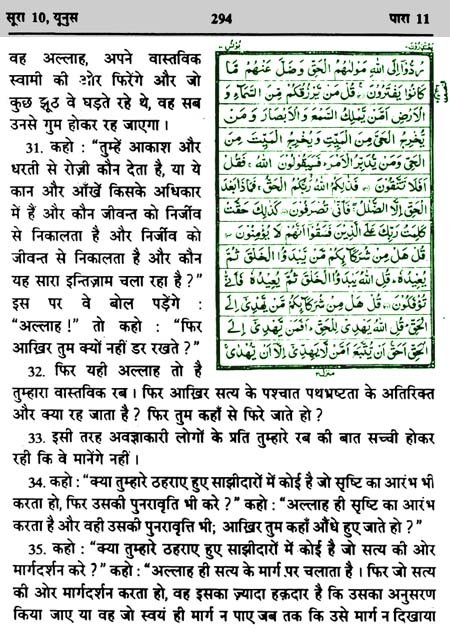 सूरा 10, यूनुस 294 पारा 11
वह अल्लाह, अपने वास्तविक
स्वामी की ओर फिरेंगे और जो
कुछ झूठ वे घड़ते रहे थे, वह सब
उनसे गुम होकर रह जाएगा।
31. कहो : "तुम्हें आकाश और
धरती से रोज़ी कौन देता है, या ये
कान और आँखें किसके अधिकार
में हैं और कौन जीवन्त को निर्जीव
से निकालता है और निर्जीव को
जीवन्त से निकालता है और कौन
यह सारा इन्तिज़ाम चला रहा है?"
इस पर वे बोल पड़ेंगे :
"अल्लाह!" तो कहो : "फिर
आख़िर तुम क्यों नहीं डर रखते?"
32. फिर यही अल्लाह तो है
وَرُدُّوْۤا اِلَى اللّٰهِ مَوْلٰىهُمُ الْحَقِّ وَضَلَّ عَنْهُمْ مَّا
كَانُوْا يَفْتَرُوْنَ قُلْ مَنْ يَّرْزُقُكُمْ مِّنَ السَّمَآءِ وَ
الْاَرْضِ اَمَّنْ يَّمْلِكُ السَّمْعَ وَ الْاَبْصَارَ وَ مَنْ
يُّخْرِجُ الْحَيَّ مِنَ الْمَيِّتِ وَ يُخْرِجُ الْمَيِّتَ مِنَ
الْحَيِّ وَمَنْ يُّدَبِّرُ الْاَمْرَ فَسَيَقُوْلُوْنَ اللّٰهُ فَقُلْ
اَفَلَا تَتَّقُوْنَ فَذٰلِكُمُ اللّٰهُ رَبُّكُمُ الْحَقُّ فَمَاذَا بَعْدَ
الْحَقِّ اِلَّا الضَّلٰلُ فَاَنّٰى تُصْرَفُوْنَ كَذٰلِكَ حَقَّتْ
كَلِمَتُ رَبِّكَ عَلَى الَّذِيْنَ فَسَقُوْۤا اَنَّهُمْ لَا يُؤْمِنُوْنَ
قُلْ هَلْ مِنْ شُرَكَآئِكُمْ مَّنْ يَّبْدَؤُا الْخَلْقَ ثُمَّ
يُعِيْدُهٗ قُلِ اللّٰهُ يَبْدَؤُا الْخَلْقَ ثُمَّ يُعِيْدُهٗ فَاَنّٰى
تُؤْفَكُوْنَ قُلْ هَلْ مِنْ شُرَكَآئِكُمْ مَّنْ يَّهْدِيْۤ اِلَى
الْحَقِّ قُلِ اللّٰهُ يَهْدِيْ لِلْحَقِّ اَفَمَنْ يَّهْدِيْۤ اِلَى
الْحَقِّ اَحَقُّ اَنْ يُّتَّبَعَ اَمَّنْ لَّا يَهِدِّيْۤ اِلَّاۤ اَنْ يُّهْدٰى
तुम्हारा वास्तविक रब। फिर आख़िर सत्य के पश्चात पथभ्रष्टता के अतिरिक्त
और क्या रह जाता है? फिर तुम कहाँ से फिरे जाते हो?
33. इसी तरह अवज्ञाकारी लोगों के प्रति तुम्हारे रब की बात सच्ची होकर
रही कि वे मानेंगे नहीं।
34. कहो : "क्या तुम्हारे ठहराए हुए साझीदारों में कोई है जो सृष्टि का आरंभ भी
करता हो, फिर उसकी पुनरावृति भी करे?" कहो : "अल्लाह ही सृष्टि का आरंभ
करता है और वही उसकी पुनरावृत्ति भी; आख़िर तुम कहाँ औंधे हुए जाते हो?"
35. कहो : "क्या तुम्हारे ठहराए हुए साझीदारों में कोई है जो सत्य की ओर
मार्गदर्शन करे?" कहो : "अल्लाह ही सत्य के मार्ग पर चलाता है। फिर जो सत्य
की ओर मार्गदर्शन करता हो, वह इसका ज़्यादा हक़दार है कि उसका अनुसरण
किया जाए या वह जो स्वयं ही मार्ग न पाए जब तक कि उसे मार्ग न दिखाया